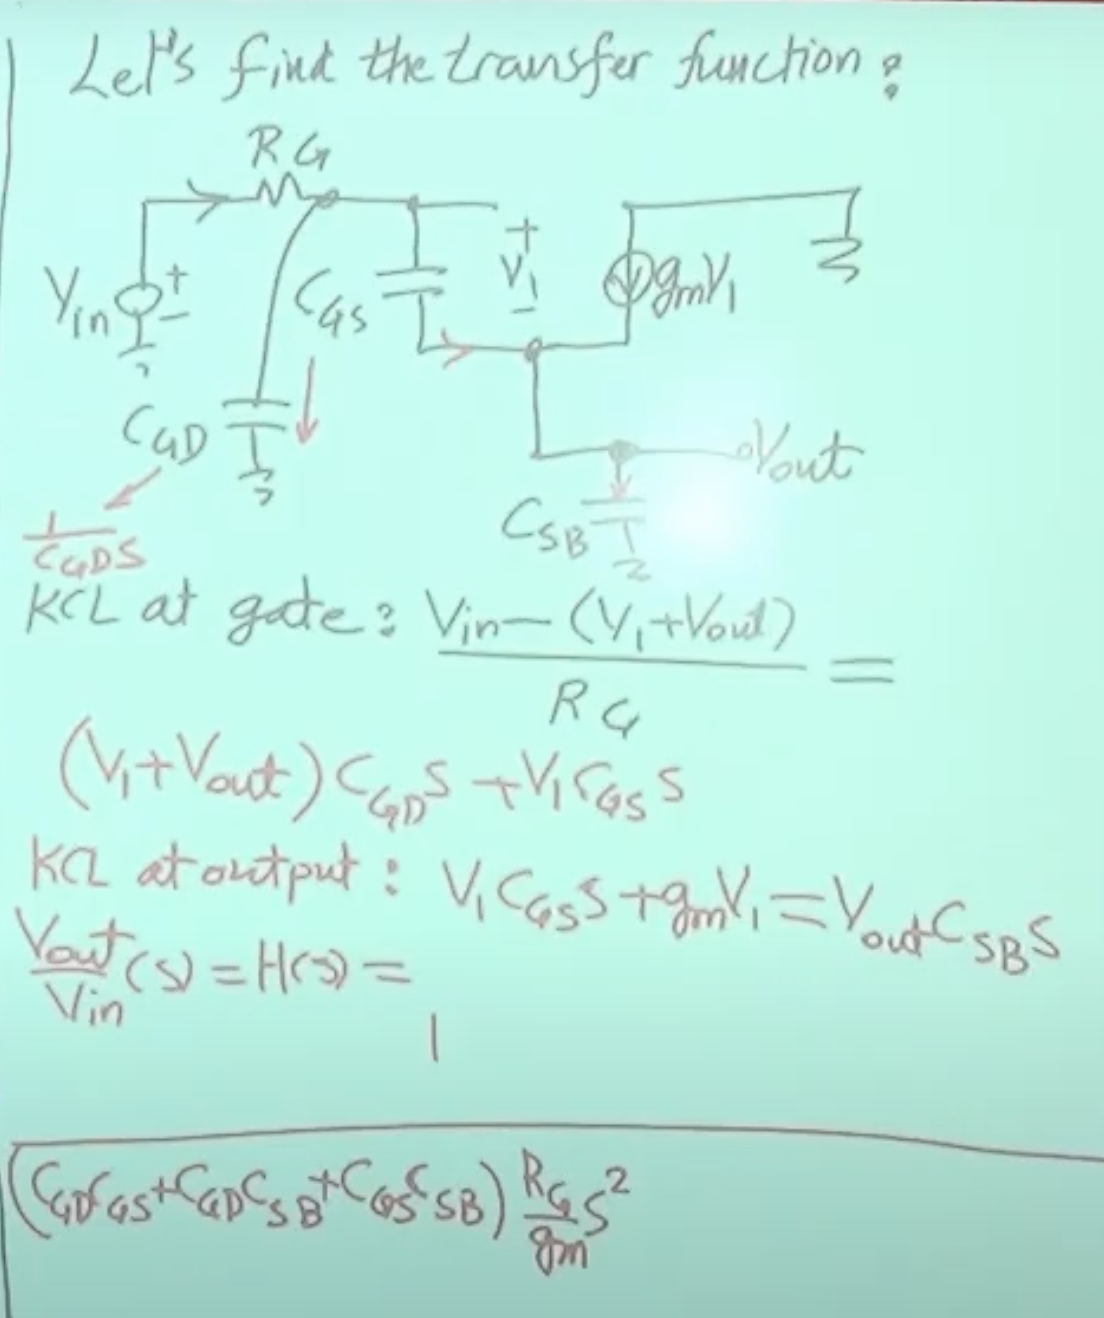 Let's find the transfer function:
RG
Vin
+
-
CGS
+
V1
-
gmV1
CGD
Vout
CSB
1
CGDS
KCL at gate: Vin-(V1+Vout) =
RG
(V1+Vout) CGDS + V1CGSS
KCL at output: V1CGSS+gmV1=VoutCSBS
Vout (s) = H(s) =
Vin
1
(CGDCGS+CGDCSB+CGSCSB) RG S²
gm